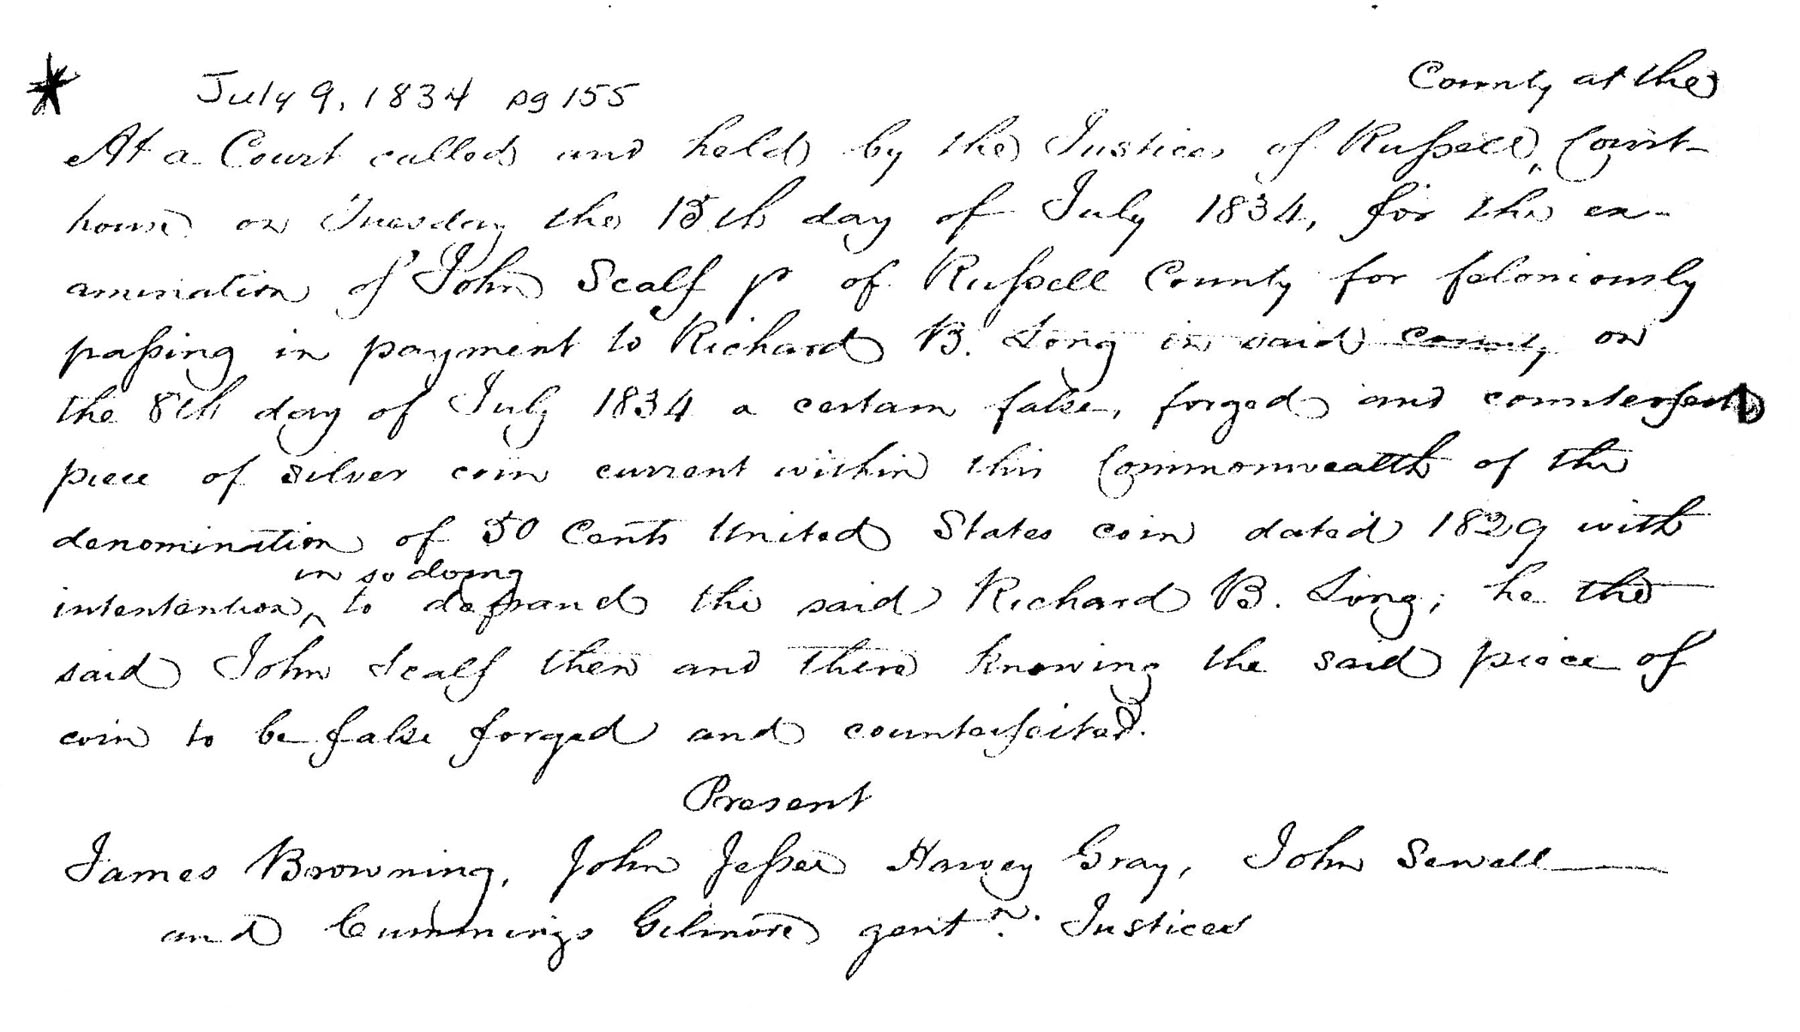 July 9, 1834 pg 155
County at the
At a Court called and held by the Justices of Russell, Court-
house on Tuesday the 15th day of July 1834, for the ex-
amination of John Scalf of Russell County for feloniously
passing in payment to Richard B. Long in said county on
the 8th day of July 1834 a certain false, forged and counterfeited
piece of silver coin current within this Commonwealth of the
denomination of 50 Cents United States coin dated 1829 with
in so doing
intentention, to defraud the said Richard B. Long; he the
said John Scalf then and there knowing the said piece of
coin to be false forged and counterfeited.
Present
James Browning, John Jessee Harvey Gray, John Sewell
and Cummings Gilmore gentn. Justices